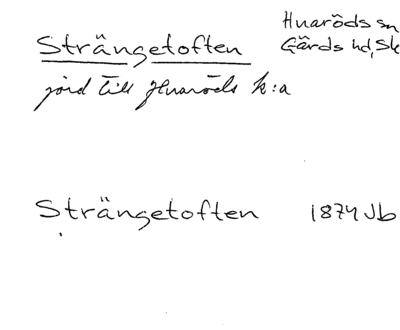 Huaröds sn
Strängetoften Gärds hd, Sk
jord till Huaröds k:a
Strängetoften 1874 Jb